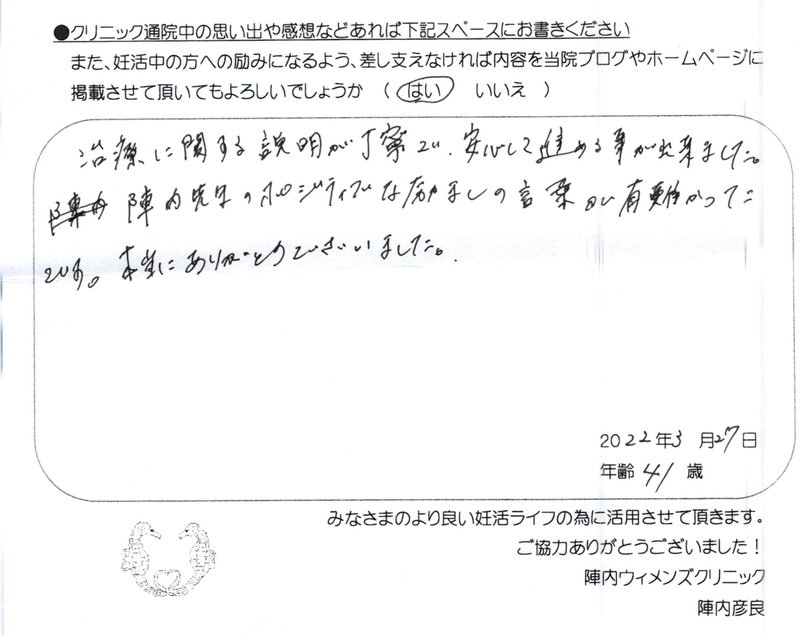 ●クリニック通院中の思い出や感想などあれば下記スペースにお書きください
また、妊活中の方への励みになるよう、差し支えなければ内容を当院ブログやホームページに
掲載させて頂いてもよろしいでしょうか （ はい いいえ ）
治療に関する説明が丁寧で、安心して進める事が出来ました。
陣内先生のポジティブな励ましの言葉が有難かった
です。本当にありがとうございました。
2022年3月27日
年齢 41 歳
みなさまのより良い妊活ライフの為に活用させて頂きます。
ご協力ありがとうございました！
陣内ウィメンズクリニック
陣内彦良